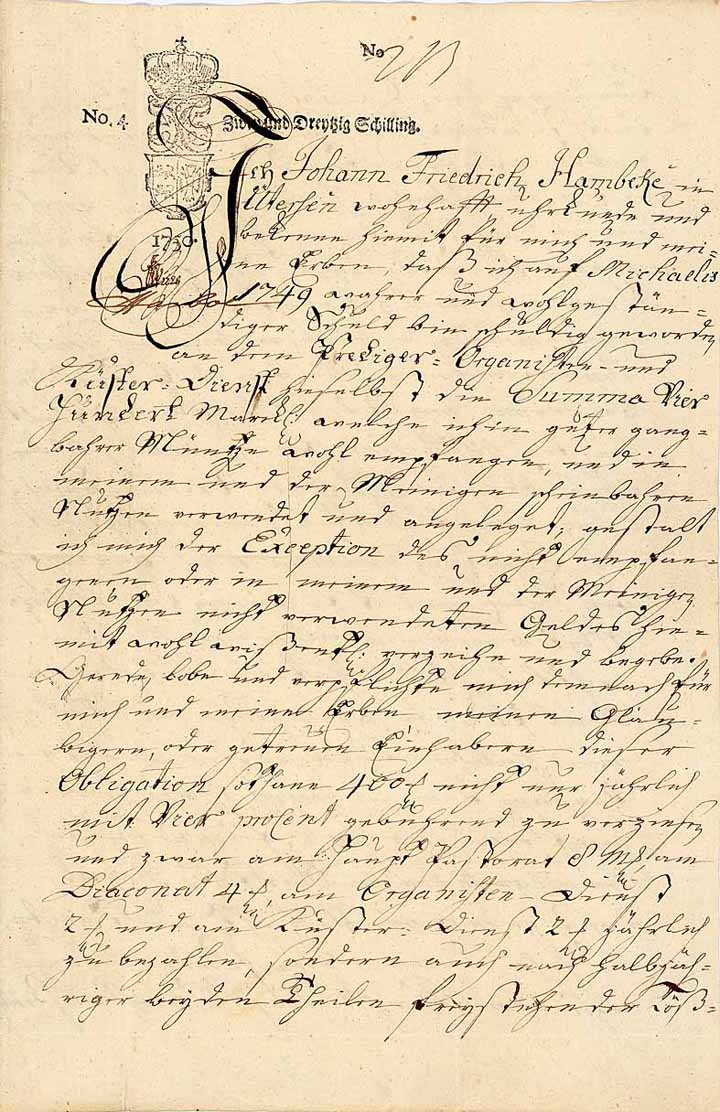 No 213
No. 4
Zwey und Dreyßig Schilling.
Ich Johann Friedrich Hambeke in
Ütersen wohnhafft, uhrkunde und
1750.
bekenne hiemit für mich und mei-
ne Erben, daß ich auf Michaelis
1749 wahrer und wohlgestän-
diger Schuld bin schuldig geworden
an dem Prediger- Organisten- und
Küster- Dienst hieselbst die Summa Vier
Hundert Marck welche ich in guter gang-
bahrer Müntze wohl empfangen, und in
meinem und der Meinigen scheinbahren
Nutzen verwendet und angeleget; gestalt
ich mich der Exception des nicht empfan-
genen oder in meinem und der Meinigen
Nutzen nicht verwendeten Geldes hie-
mit wohl wißentl: verzeihe und begebe.
Gerede, lobe und verpflichte mich demnach für
mich und meine Erben meinen Gläu-
bigern, oder getreuen Einhabern dieser
Obligation sothane 400 nicht nur jährlich
mit Vier proCent gebührend zu verzinsen
und zwar am Haupt Pastorat 8 am
Diaconat 4, am Organisten- Dienst
2 und am Küster- Dienst 2 jährlich
zu bezahlen, sondern auch nach halbjäh-
riger beyden Theilen freystehender Löß-